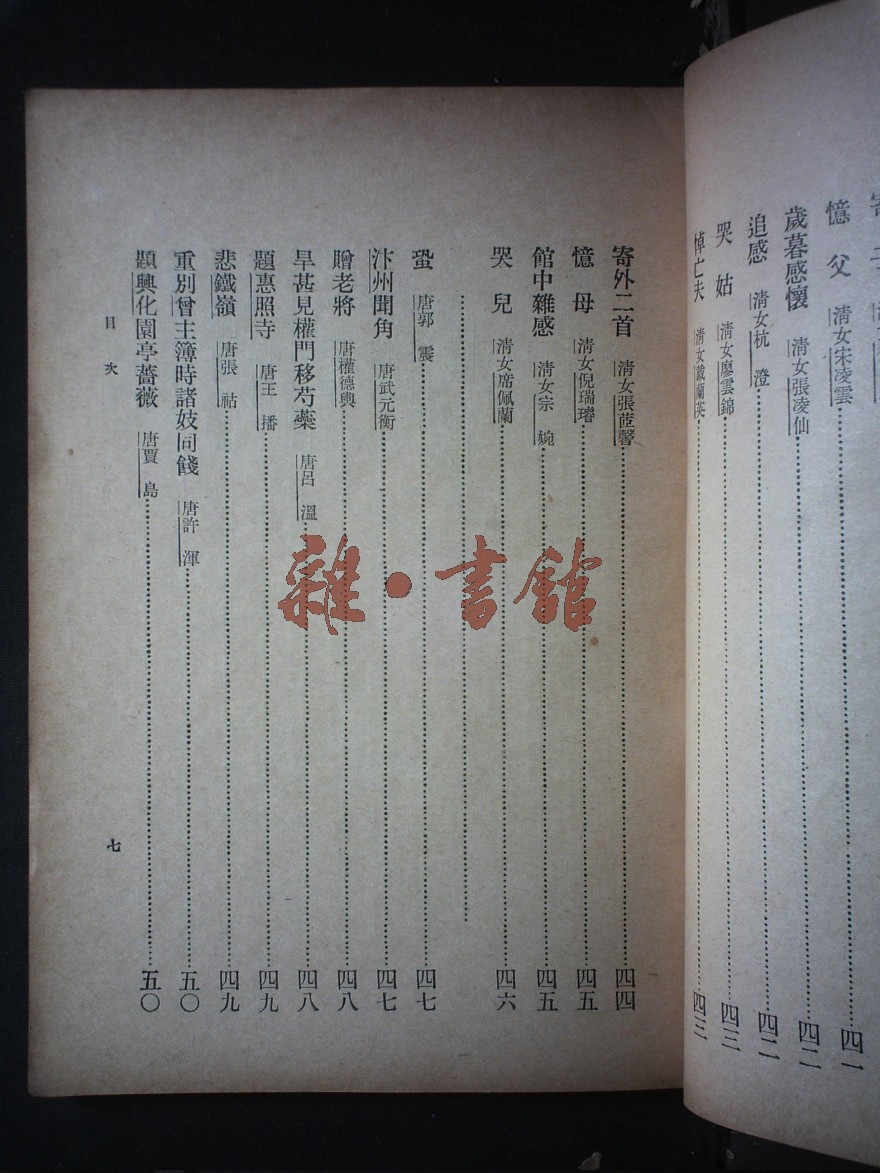 憶父 清女宋凌雲 四一
歲暮感懷 清女張凌仙 四二
追感 清女杭澄 四二
哭姑 清女廖雲錦 四三
悼亡夫 清女戴蘭英 四三
寄外二首 清女張蒞馨 四四
憶母 清女倪瑞璿 四五
館中雜感 清女宗婉 四五
哭兒 清女席佩蘭 四六
蛩 唐郭震 四七
汴州聞角 唐武元衡 四七
贈老將 唐權德輿 四八
旱甚見權門移芍藥 唐呂溫 四八
題惠照寺 唐王播 四九
悲鐵嶺 唐張祜 四九
重別曾主簿時諸妓同餞 唐許渾 五〇
題興化園亭薔薇 唐賈島 五〇
目次
七
雜·書館